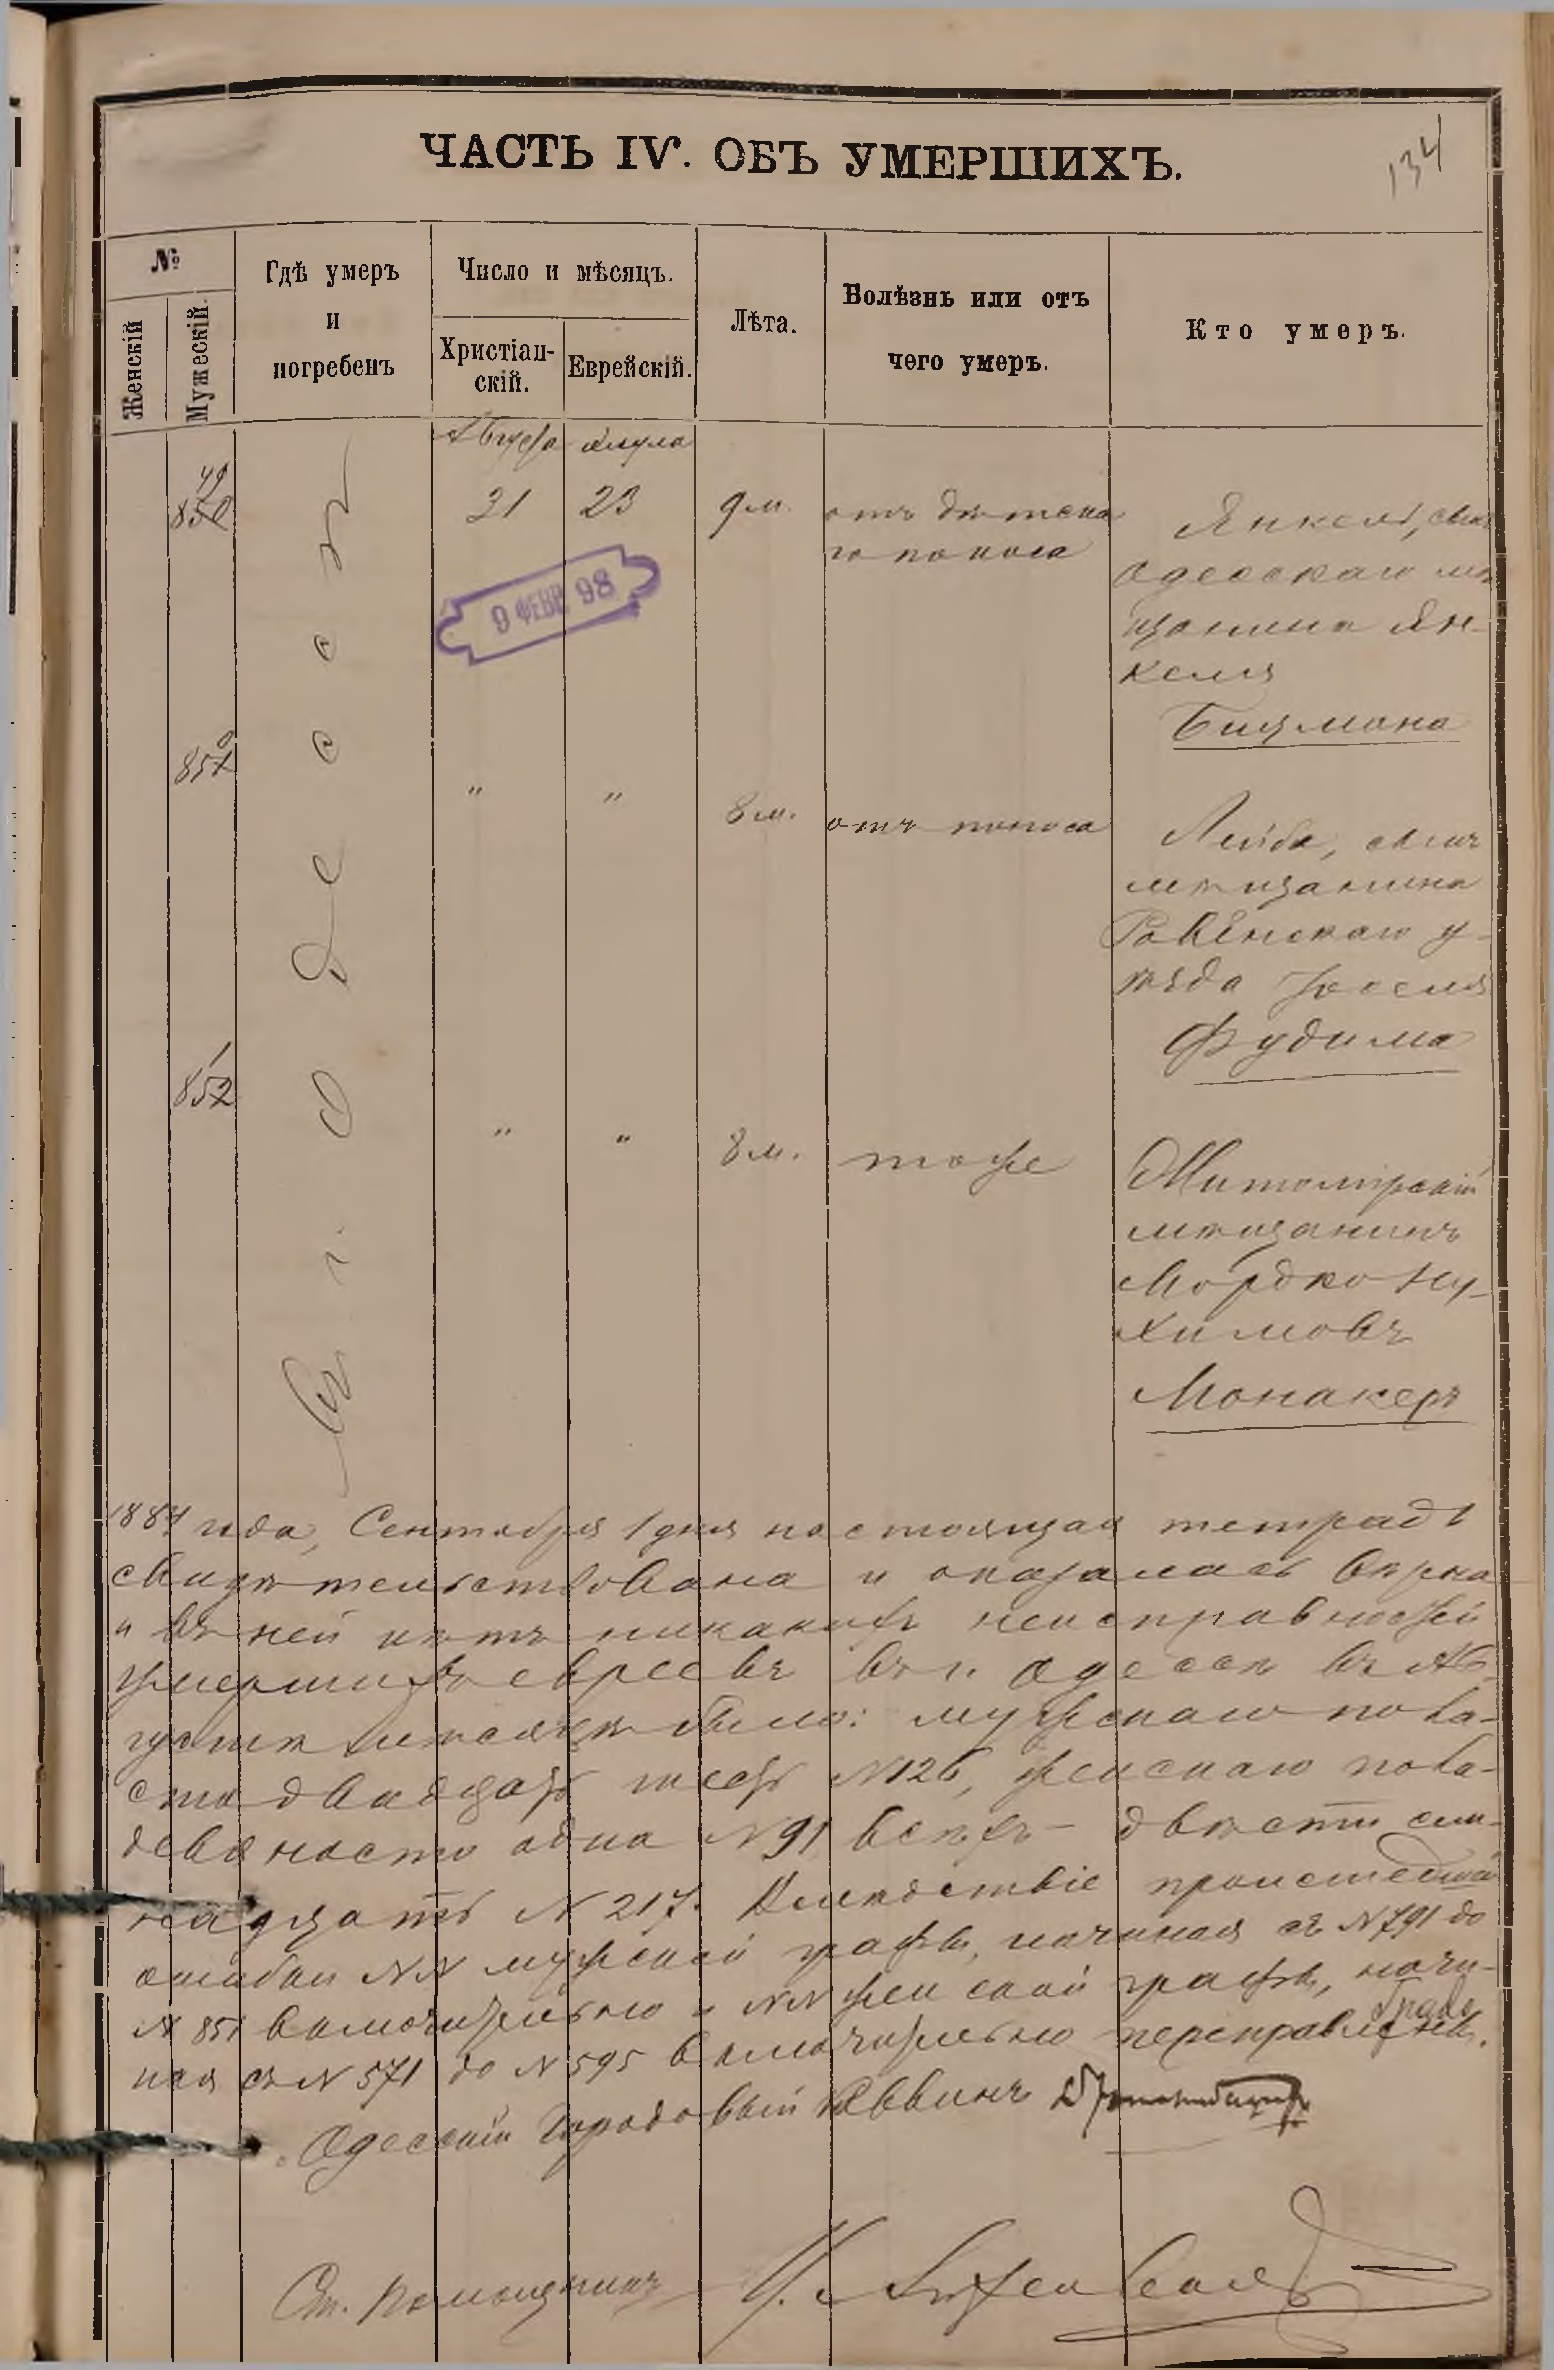 ЧАСТЬ IV. ОБЪ УМЕРШИХЪ.
134
№
Женскій
Мужескій.
Гдѣ умеръ
и
погребенъ
Число и мѣсяцъ.
Христіан-
скій.
Еврейскій.
Лѣта.
Болѣзнь или отъ
чего умеръ.
Кто умеръ.
Августа
Элула
49
850
31
23
9 м.
отъ дѣтска
го поноса
Янкель, сынъ
Одесскаго мѣ
щанина Ян-
келя
Бицмана
9 ФЕВР. 98
0
851
"
"
8 м.
отъ поноса
Лейба, сынъ
мѣщанина
Ровенскаго у-
ѣзда Іоселя
Фудима
1
852
"
"
8 м.
тоже
Житомірскій
мѣщанинъ
Мордко Ну-
химовъ
Монакеръ
Въ г. Одессѣ
1884 года, Сентября 1 дня настоящая тетрадь
свидѣтельствована и оказалась вѣрна
и въ ней нѣтъ никакихъ неисправностей
умершихъ евреевъ въ г. Одессѣ въ Ав-
густѣ мѣсяцѣ было: мужскаго пола
сто двадцать шесть N 126, женскаго пола
девяносто одна N 91 всѣхъ - двѣсти сем-
надцать N 217. Вслѣдствіе происшедшей
ошибки NN мужской графы, начиная съ N 791 до
N 851 включительно и NN женской графы, начи-
ная съ N 571 до N 595 включительно переправлены.
Одесскій Городовый Раввинъ
Ст. Помощникъ